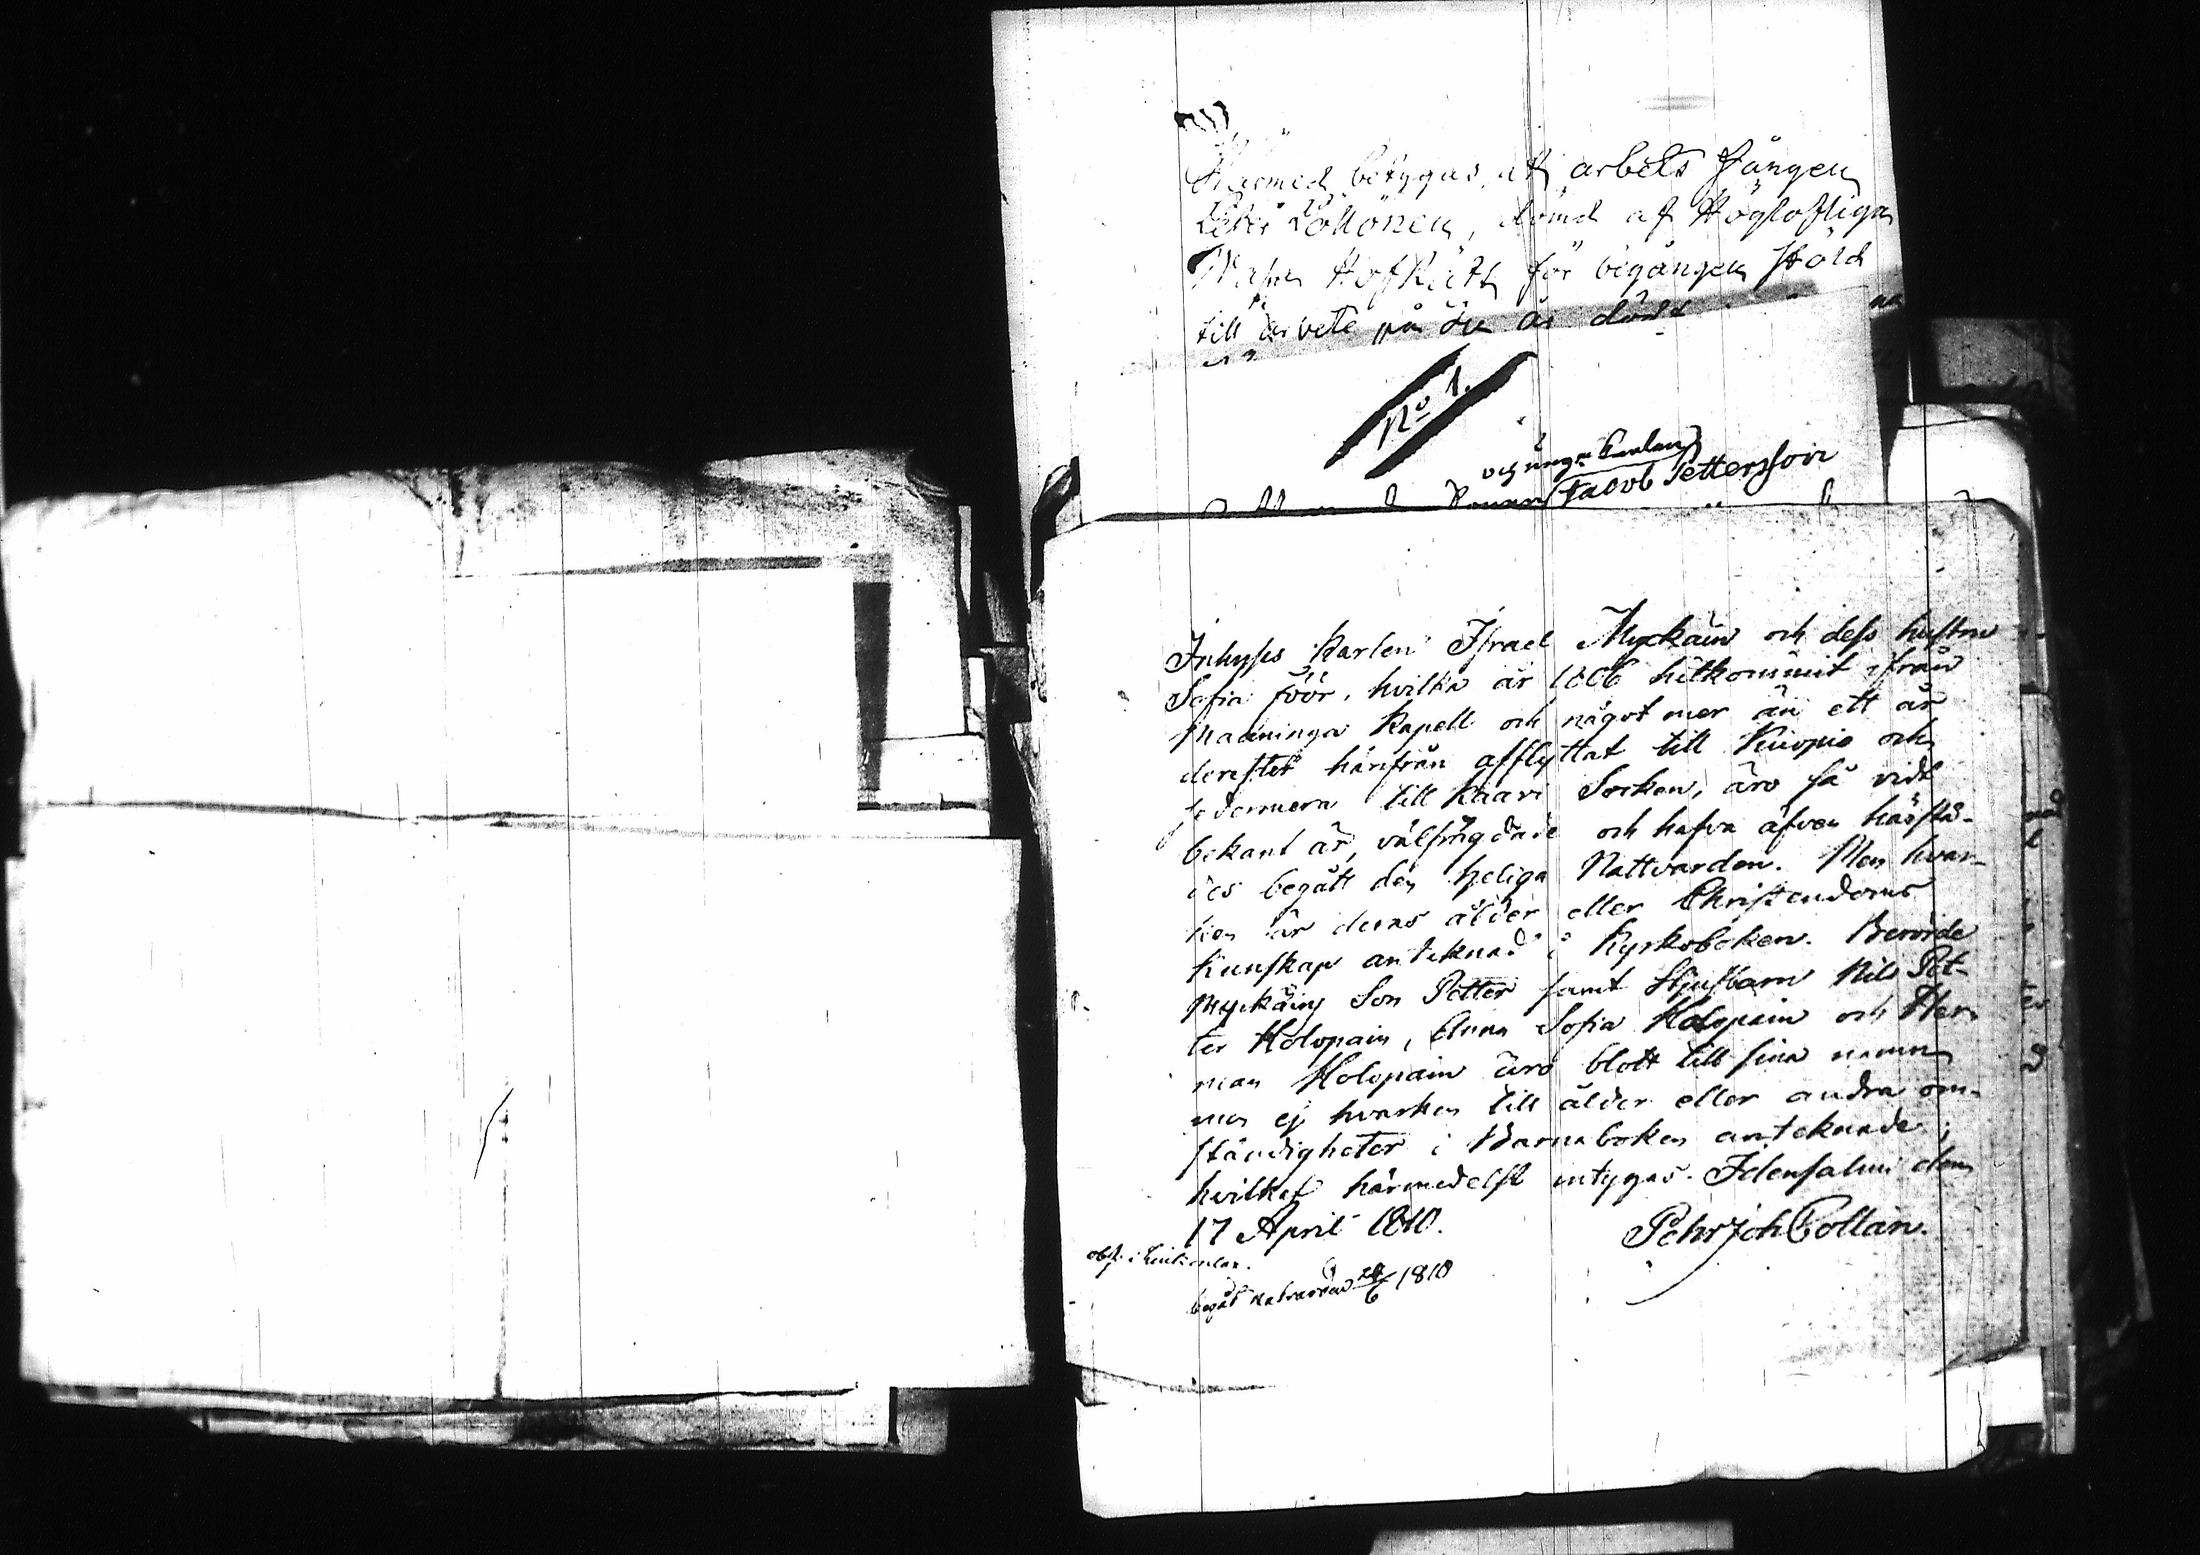 Härmed betygas att arbets fången
Petter Löttönen, dömd af Höglofliga
Wasa HofRätt för begången stöld
till arbete på
No 1.
och unga Karlen
Jacob Pettersson
Inhyses Karlen Israel Myckäin och dess hustru
Sofia Föör, hvilka år 1806 hitkommit ifrån
Maaninga Kapell och något mer än ett år
derefter härifrån afflyttat till Kuopio och
sedermera till Kaavi Socken, äro så vidt
bekant är, välfrägdade och hafva äfven härstä-
des begått den heliga Nattvarden. Men hvar-
ken är deras ålder eller Christendoms
Kunskap anteknad i Kyrkoboken. Berörde
Myckäins Son Petter samt Styfbarn Nils Pet-
ter Holopain, Anna Sofia Holopain och Her-
man Holopain äro blott till sina namn
men ej hvarken till ålder eller andra om-
ständigheter i Barnaboken anteknade;
hvilket härmedelst intygas. Idensalmi den
17 April 1810.
Pehr Joh Collan.
begåt nattvarden 24/6 1810